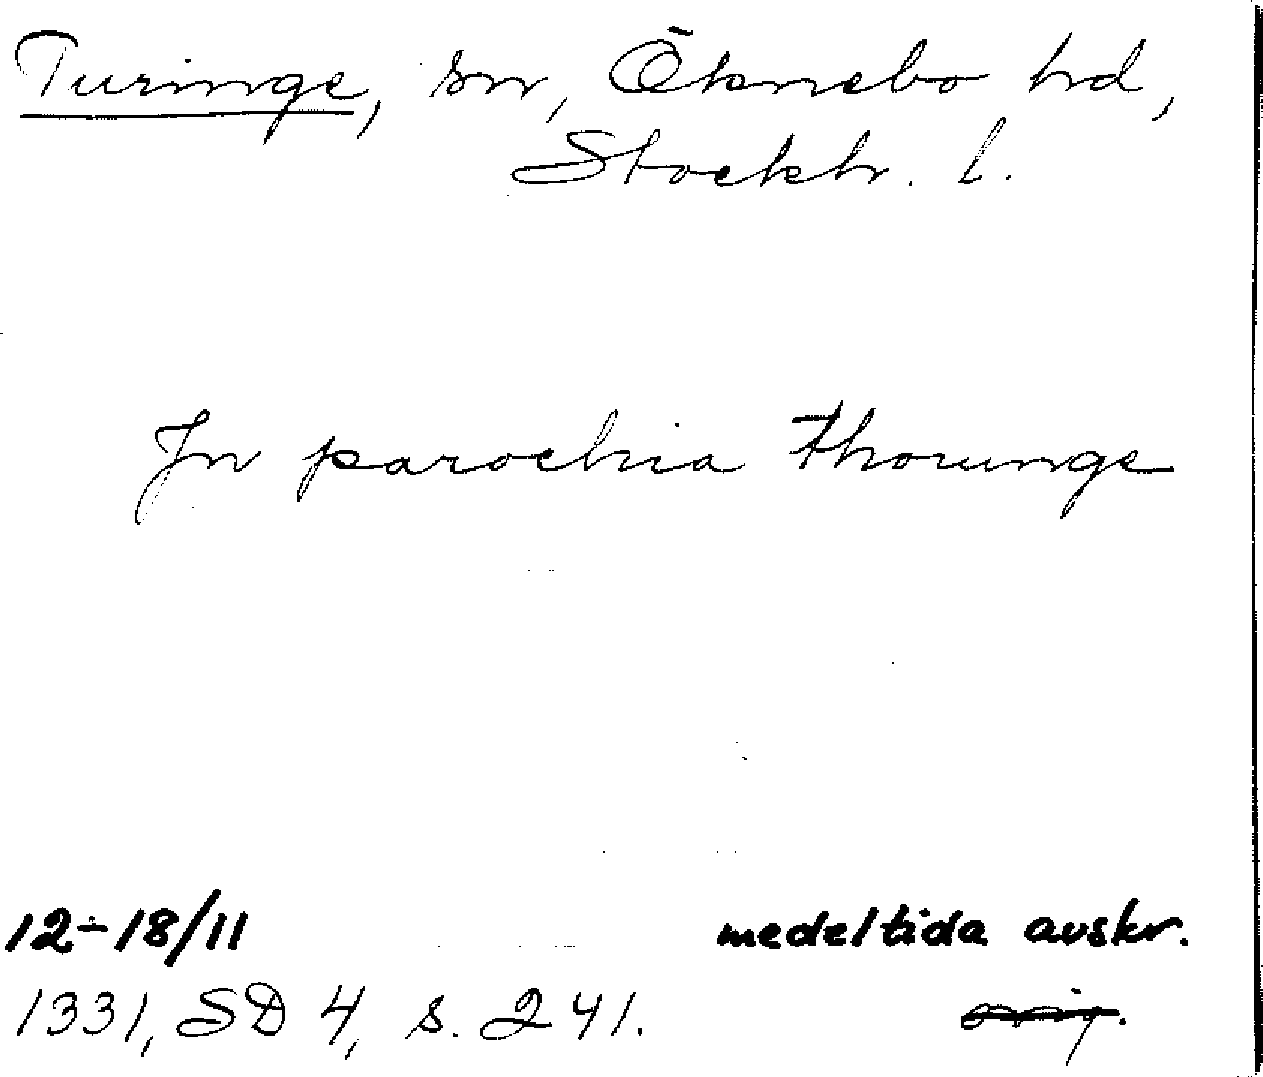 Turinge, sn, Öknebo hd,
Stockh. l.
Jn parochia thorunge
12-18/11 medeltida avskr.
1331, SD 4, s. 241. orig.